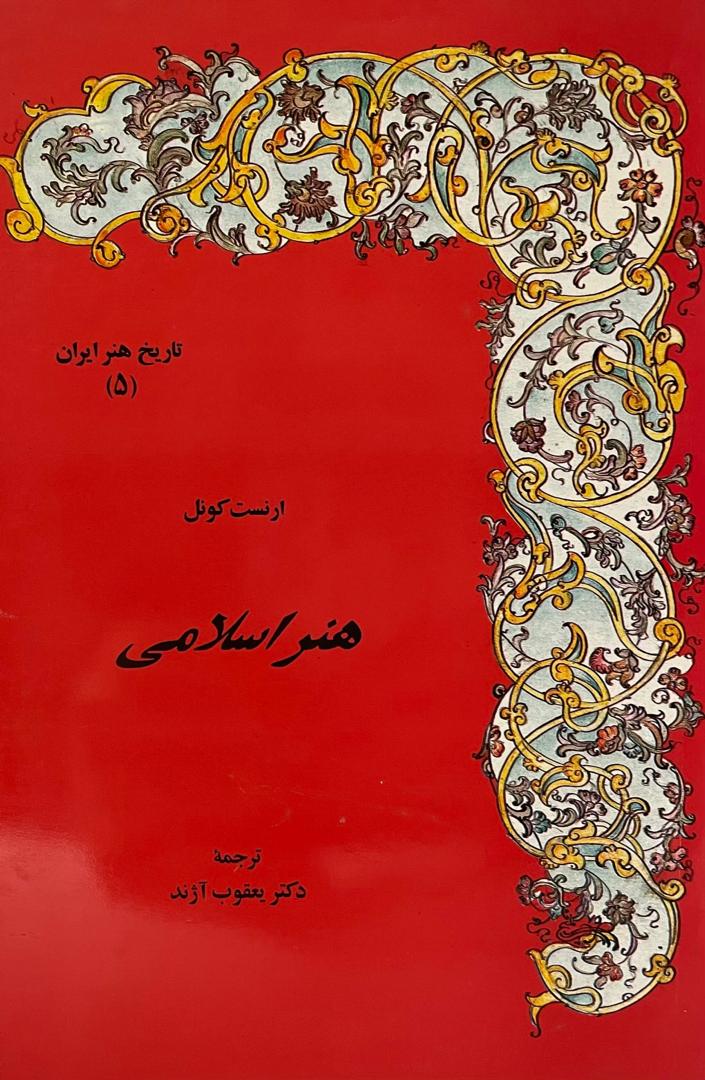 تاریخ هنر ایران
(۵)
ارنست کونل
هنر اسلامی
ترجمهٔ
دکتر یعقوب آژند